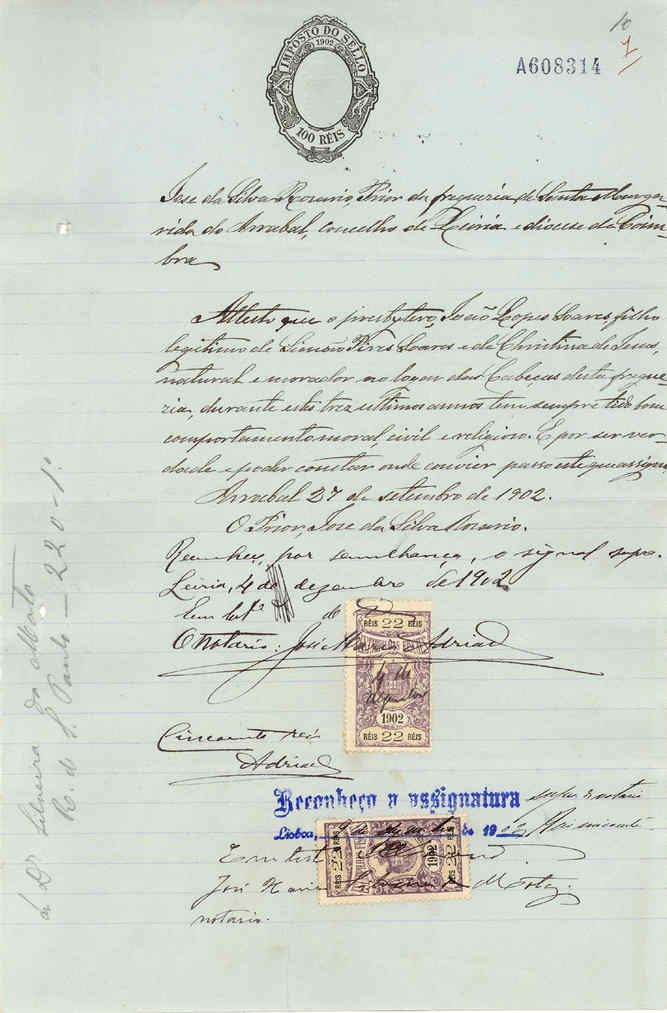 IMPOSTO DO SELLO
1902
100 RÉIS
10
1
A608314
Jose da Silva Rosario, Prior da freguezia de Santa Marga-
rida do Arrabal, concelho de Leiria e diocese de Coim-
bra
Attesto que o presbytero, João Lopes Soares, filho
legitimo de Simão Pires Soares e de Christina de Jesus,
natural e morador no logar das Cabeças desta fregue-
zia, durante estes trez ultimos annos tem sempre tido bom
comportamento moral, civil e religioso. E por ser ver-
dade e poder constar onde convier passo este que assigno
Arrabal 27 de setembro de 1902.
O Prior, Jose da Silva Rosario.
Reconheço, por semelhança, o signal supra.
Leiria, 4 de dezembro de 1902
Em test.º de
O notario: José Adrião
RÉIS 22 RÉIS
4 de
dezembro
1902
RÉIS 22 RÉIS
Cincoenta reis
Adrião
Reconheço a assignatura supra
Lisboa, de 19
RÉIS 22 RÉIS
1902
RÉIS 22 RÉIS
Em test
José da Motta
notario.
Dr Silveira da Motta
R. de S. Paulo — 220-1º